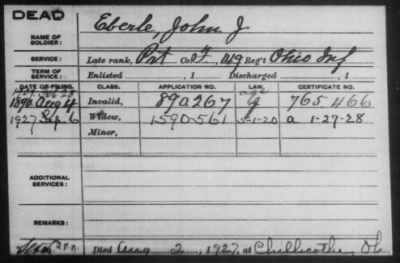 DEAD
NAME OF SOLDIER: Eberle, John J
SERVICE: Late rank, Pvt Co. F, 149 Reg't Ohio Inf
TERM OF SERVICE: Enlisted , 1 Discharged , 1
DATE OF FILING. CLASS. APPLICATION NO. LAW. CERTIFICATE NO.
1890 Aug 4 Invalid, 890267 age 765466
1927 Sep 6 Widow, 1590-561 5-1-20 a 1-27-28
Minor,
ADDITIONAL SERVICES:
REMARKS:
Died Aug 2, 1927, at Chillicothe, Oh